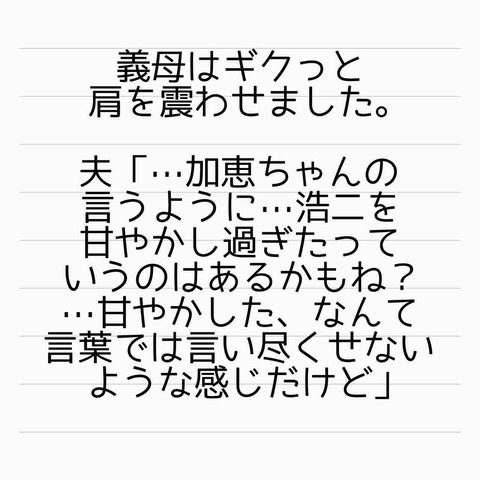 義母はギクっと
肩を震わせました。
夫「…加恵ちゃんの
言うように…浩二を
甘やかし過ぎたって
いうのはあるかもね？
…甘やかした、なんて
言葉では言い尽くせない
ような感じだけど」